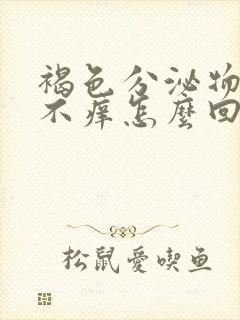 褐色分泌物
不痒怎麼回
松鼠愛喫鱼